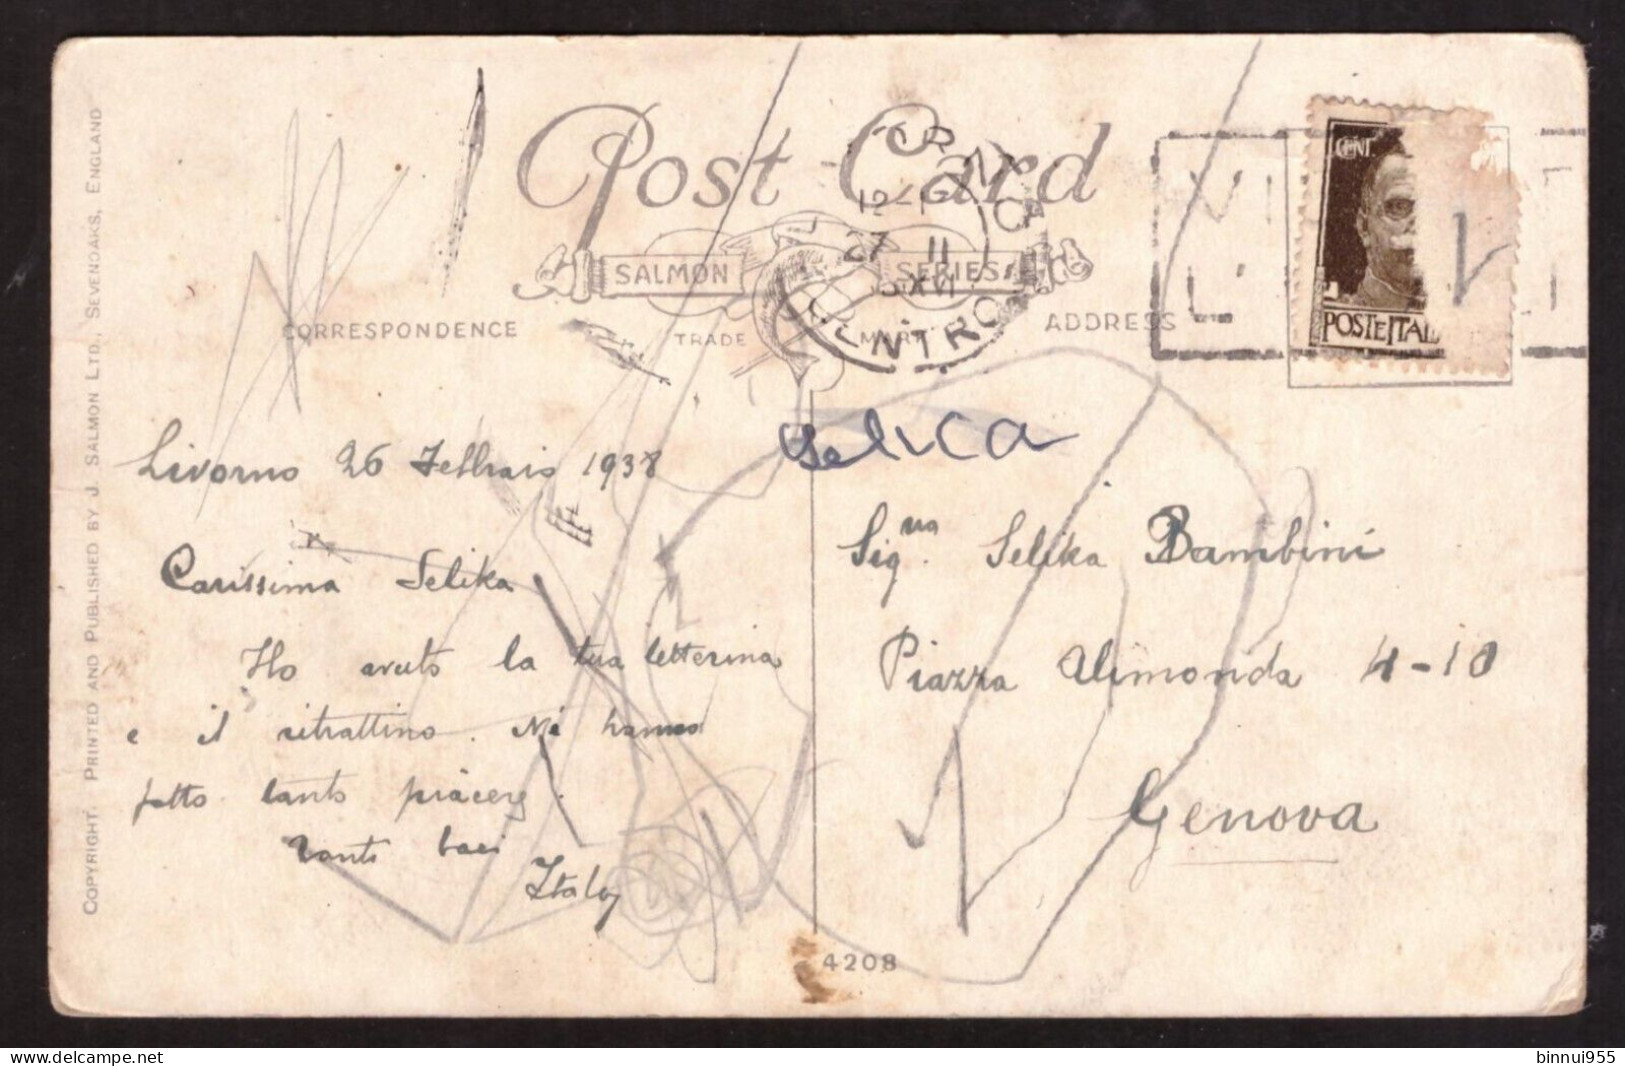 Post Card
SALMON SERIES
CORRESPONDENCE
TRADE MARK
ADDRESS
COPYRIGHT. PRINTED AND PUBLISHED BY J. SALMON LTD., SEVENOAKS, ENGLAND
27 II
XVI
CENTRO
CENT.
POSTE ITAL
Livorno 26 Febbraio 1938
Carissima Selika
Ho avuto la tua letterina
e il ritrattino. Mi hanno
fatto tanto piacere.
Tanti baci
Italo
Selica
Sig.na Selika Bambini
Piazza Alimonda 4-10
Genova
4208
binnui955